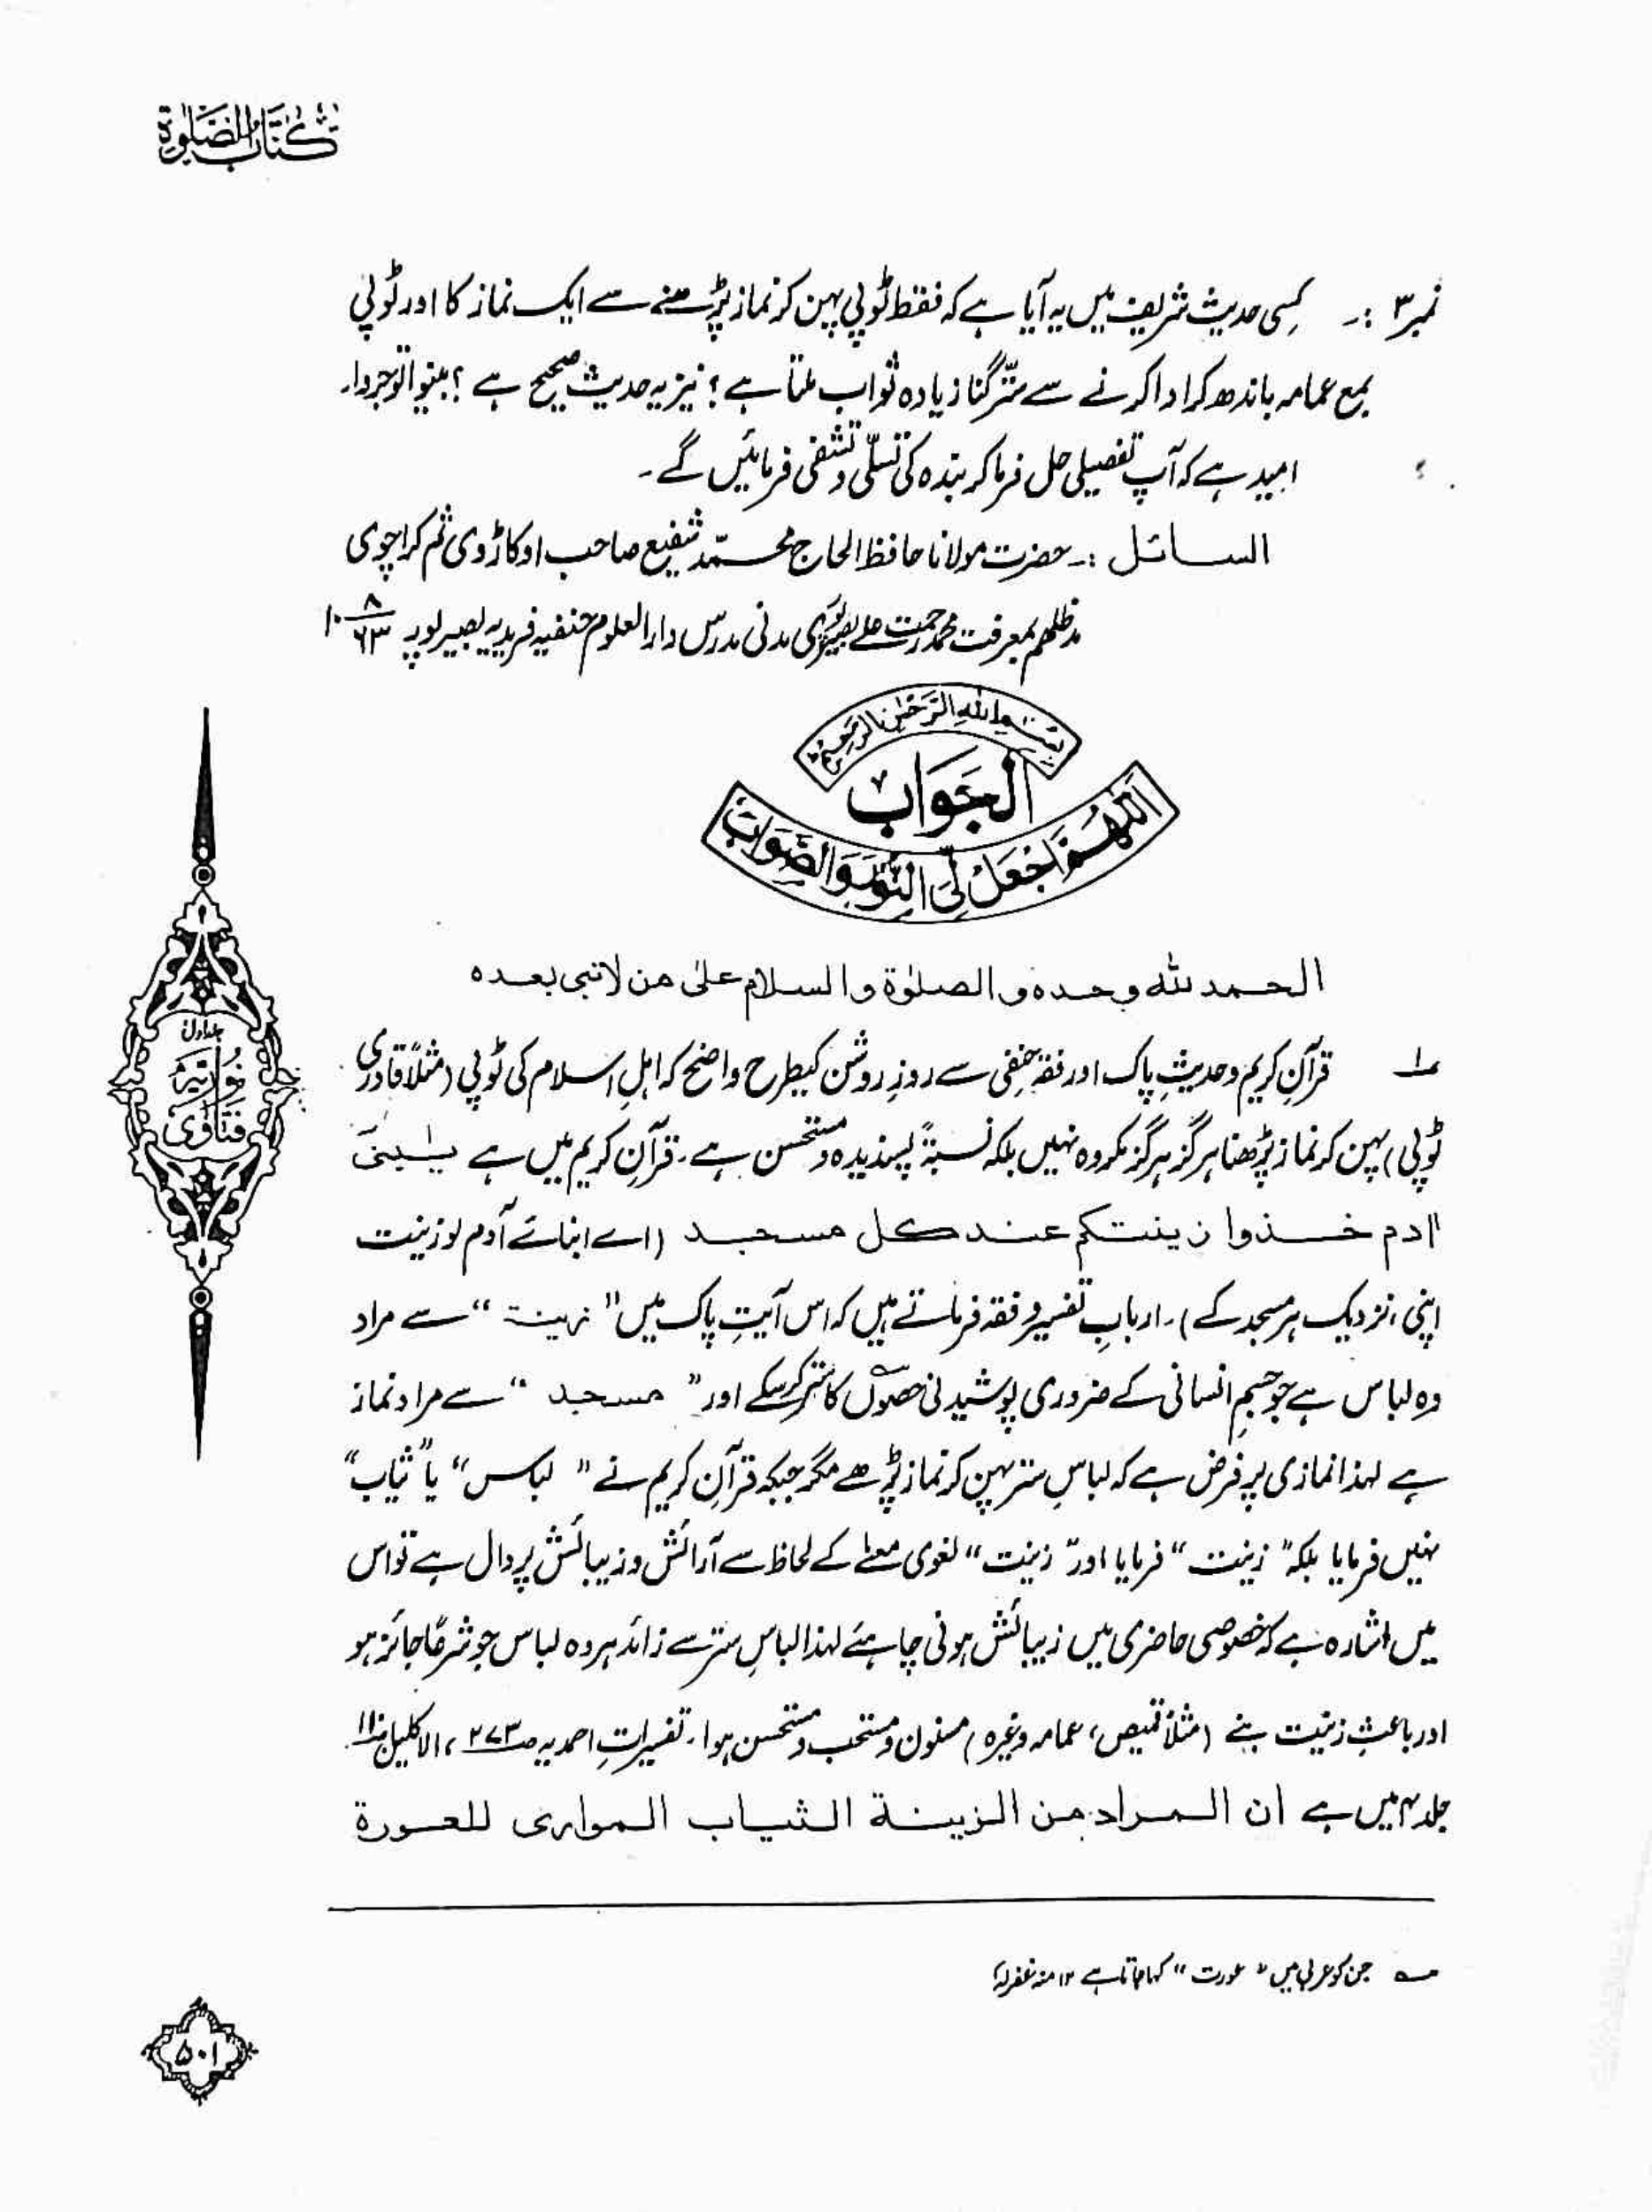 كتاب الصلوة
نمبر ۳ :۔ کسی حدیث شریف میں یہ آیا ہے کہ فقط ٹوپی پہن کر نماز پڑھنے سے ایک نماز کا اور ٹوپی
بمع عمامہ باندھ کر ادا کرنے سے ستّر گنا زیادہ ثواب ملتا ہے ؟ نیز یہ حدیث صحیح ہے ؟ بینوا توجروا۔
امید ہے کہ آپ تفصیلی حل فرما کر بندہ کی تسلّی و تشفی فرمائیں گے ۔
السائل :۔ حضرت مولانا حافظ الحاج محمّد شفیع صاحب اوکاڑوی ثم کراچوی
مدظلہم بمعرفت محمد رحمت علی بصیرپوری مدنی مدرس دارالعلوم حنفیہ فریدیہ بصیرپور ۱۰ ۸ ۶۳
بسم الله الرحمٰن الرحيم
الجَوَاب
اَللّٰهُمَّ اجْعَلْ لِّيَ النُّوْرَ وَالصَّوَابَ
الحمد لله وحده والصلوٰة والسلام علىٰ من لا نبی بعده
۱؎ قرآنِ کریم و حدیثِ پاک اور فقہ حنفی سے روزِ روشن کیطرح واضح کہ اہلِ اسلام کی ٹوپی (مثلاً قادری
ٹوپی) پہن کر نماز پڑھنا ہرگز ہرگز مکروہ نہیں بلکہ نسبۃً پسندیدہ و مستحسن ہے ۔ قرآنِ کریم میں ہے یٰبنیٓ
اٰدم خذوا زینتکم عند کل مسجد (اے ابنائے آدم لو زینت
اپنی، نزدیک ہر مسجد کے) ۔ اربابِ تفسیر و فقہ فرماتے ہیں کہ اس آیتِ پاک میں " زینۃ " سے مراد
وہ لباس ہے جو جسمِ انسانی کے ضروری پوشیدنی حصوں؎ کا ستر کر سکے اور " مسجد " سے مراد نماز
ہے لہذا نمازی پر فرض ہے کہ لباسِ ستر پہن کر نماز پڑھے مگر جبکہ قرآنِ کریم نے " لباس " یا " ثیاب "
نہیں فرمایا بلکہ " زینت " فرمایا اور " زینت " لغوی معنٰے کے لحاظ سے آرائش و زیبائش پر دال ہے تو اس
میں اشارہ ہے کہ خصوصی حاضری میں زیبائش ہونی چاہئے لہذا لباسِ ستر سے زائد ہر وہ لباس جو شرعًا جائز ہو
اور باعثِ زینت بنے (مثلاً قمیص، عمامہ وغیرہ) مسنون و مستحب و مستحسن ہوا ۔ تفسیراتِ احمدیہ صـ۲۷۳ ، الاکلیل صـ۱۱
جلد ۴ میں ہے ان المراد من الزینة الثیاب المواری للعورة
؎ جن کو عربی میں " عورت " کہا جاتا ہے ۱۲ منہ غفرلہٗ
جلد اول
نوریہ
فتاوی
۵۰۱